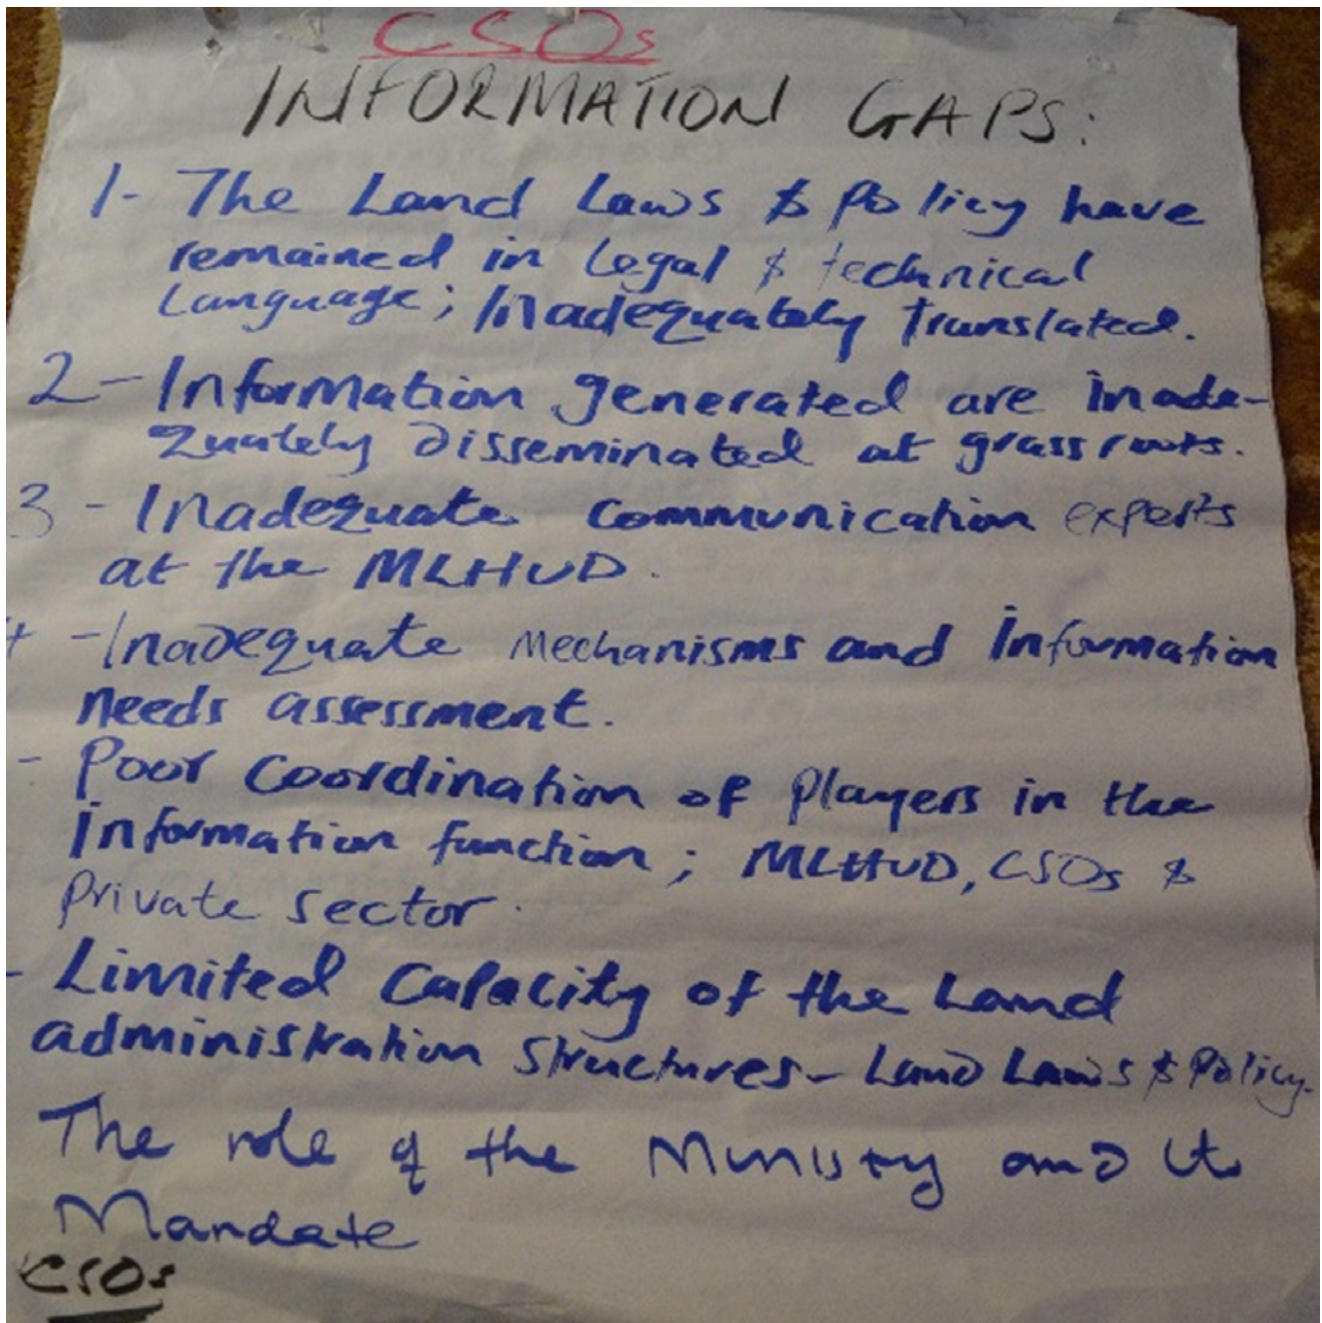 CSOs
INFORMATION GAPS:
1- The Land Laws & Policy have
remained in Legal & technical
Language; Inadequately Translated.
2- Information generated are inade-
quately disseminated at grassroots.
3 - Inadequate communication experts
at the MLHUD.
4 - Inadequate Mechanisms and information
needs assessment.
- Poor Coordination of Players in the
information function; MLHUD, CSOs &
Private sector.
- Limited Capacity of the Land
administration structures - Land Laws & Policy.
The role of the Ministry and its
Mandate
CSOs